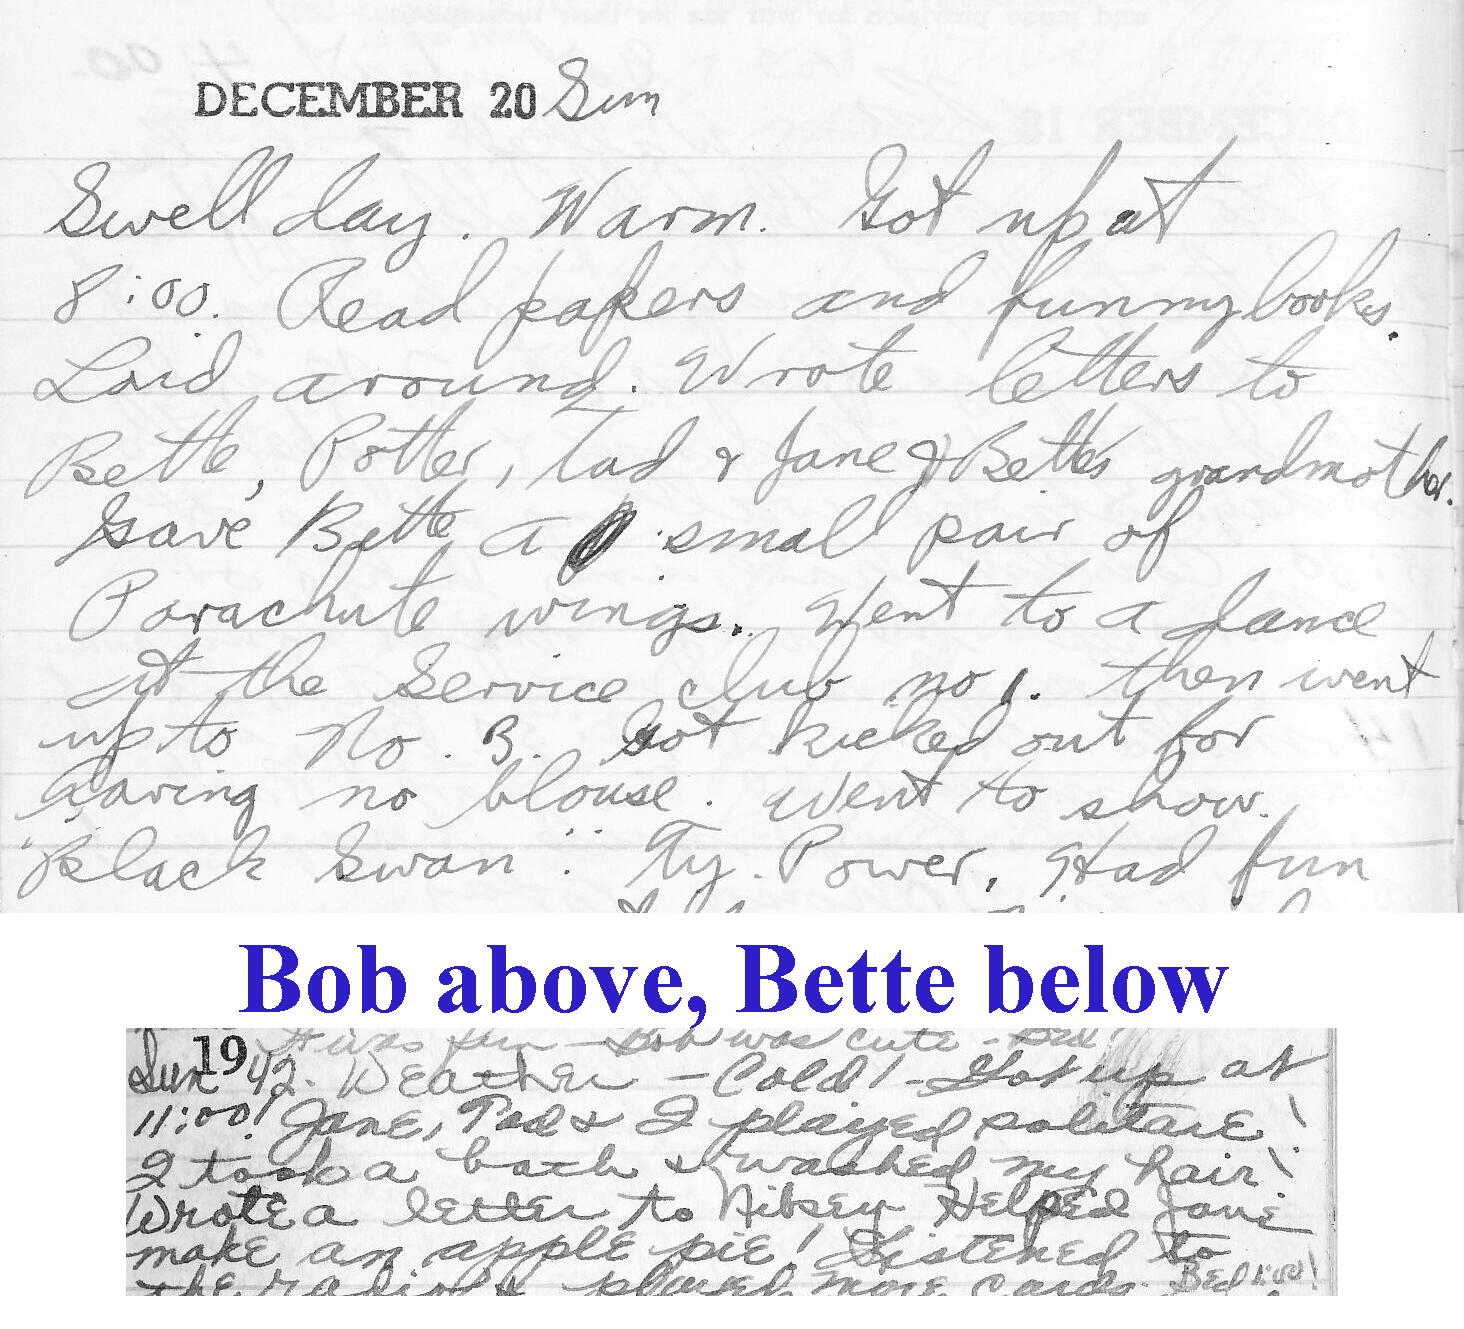 DECEMBER 20 Sun
Swell day. Warm. Got up at
8:00. Read papers and funny books.
Laid around. Wrote letters to
Bette, Potter, Tad & Jane & Bette's grandmother.
Gave Bette a small pair of
Parachute wings. Went to a dance
at the Service club no 1. then went
up to No. 3. Got kicked out for
having no blouse. Went to show.
"Black Swan". Ty. Power. Had fun
Bob above, Bette below
It was fun - Bob was cute - Bed
Sun 1942. Weather - Cold! - Got up at
11:00! Jane, Tad & I played solitare!
I took a bath & washed my hair!
Wrote a letter to Nibsey Helped Jane
make an apple pie! Listened to
the radio & played more cards. Bed 1:00!